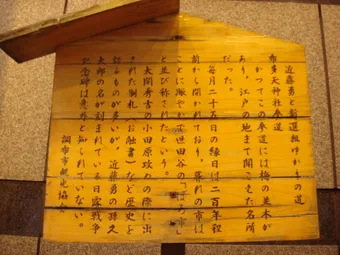 近藤勇と新選組ゆかりの道
布多天神社参道
かつてこの参道には梅の並木が
あり、江戸の地まで聞こえた名所
だった。
毎月二十五日の縁日は二百年程
前から開かれており、暮れの市は
ことに賑やかで世田谷の「ぼろ市」
と並び称されたという。
太閤秀吉の小田原攻めの際に出
された制札（お触書）など歴史を
語るものが多いが、近藤勇の孫久
太郎の名が刻まれている日露戦争
記念碑は意外と知られていない。
調布市観光協会